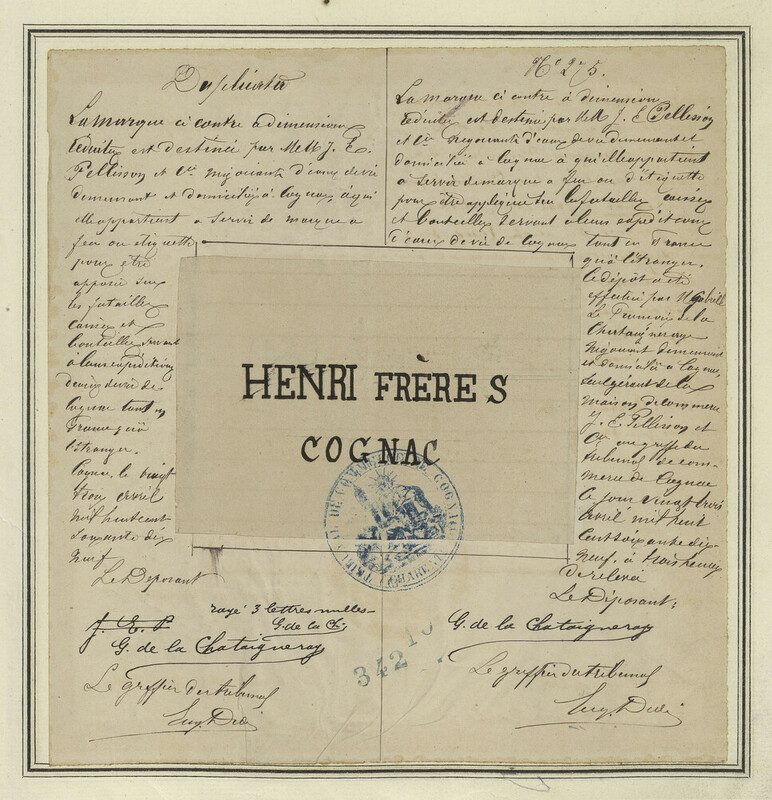 Duplicata
La marque ci contre à dimensions
réduites est destinée par MM J. E.
Pellisson et Cie négociants d'eaux de vie
demeurant et domiciliés à Cognac, à qui
elle appartient à servir de marque à
feu ou étiquette
pour être
apposée sur
les futailles
caisses et
bouteilles servant
à leurs expéditions
d'eaux de vie de
Cognac tant en
France qu'à
l'étranger.
Cognac, le vingt
trois avril
mil huit cent
soixante dix
neuf
Le Déposant
J. E. P.
rayé 3 lettres nulles
G. de la Ch;
G. de la Chataigneray
Le greffier du tribunal
No 275.
La marque ci contre à dimensions
réduites est destinée par MM J. E. Pellisson
et Cie négociants d'eaux de vie demeurant et
domiciliés à Cognac à qui elle appartient
à servir de marque à feu ou d'étiquette
pour être appliquée sur les futailles, caisses
et bouteilles servant à leurs expéditions
d'eaux de vie de Cognac tant en France
qu'à l'étranger.
Ce dépôt a été
effectué par M Gabriel
de la
Chataigneraye
négociant demeurant
et domicilié à Cognac,
seul gérant de la
maison de commerce
J. E. Pellisson et
Cie au greffe du
tribunal de com-
merce de Cognac
ce jour vingt trois
avril mil huit
cent soixante dix-
neuf, à trois heures
de relevée
Le Déposant;
G. de la Chataigneray
Le greffier du tribunal
HENRI FRÈRES
COGNAC
TRIBUNAL DE COMMERCE DE COGNAC (CHARENTE)
342